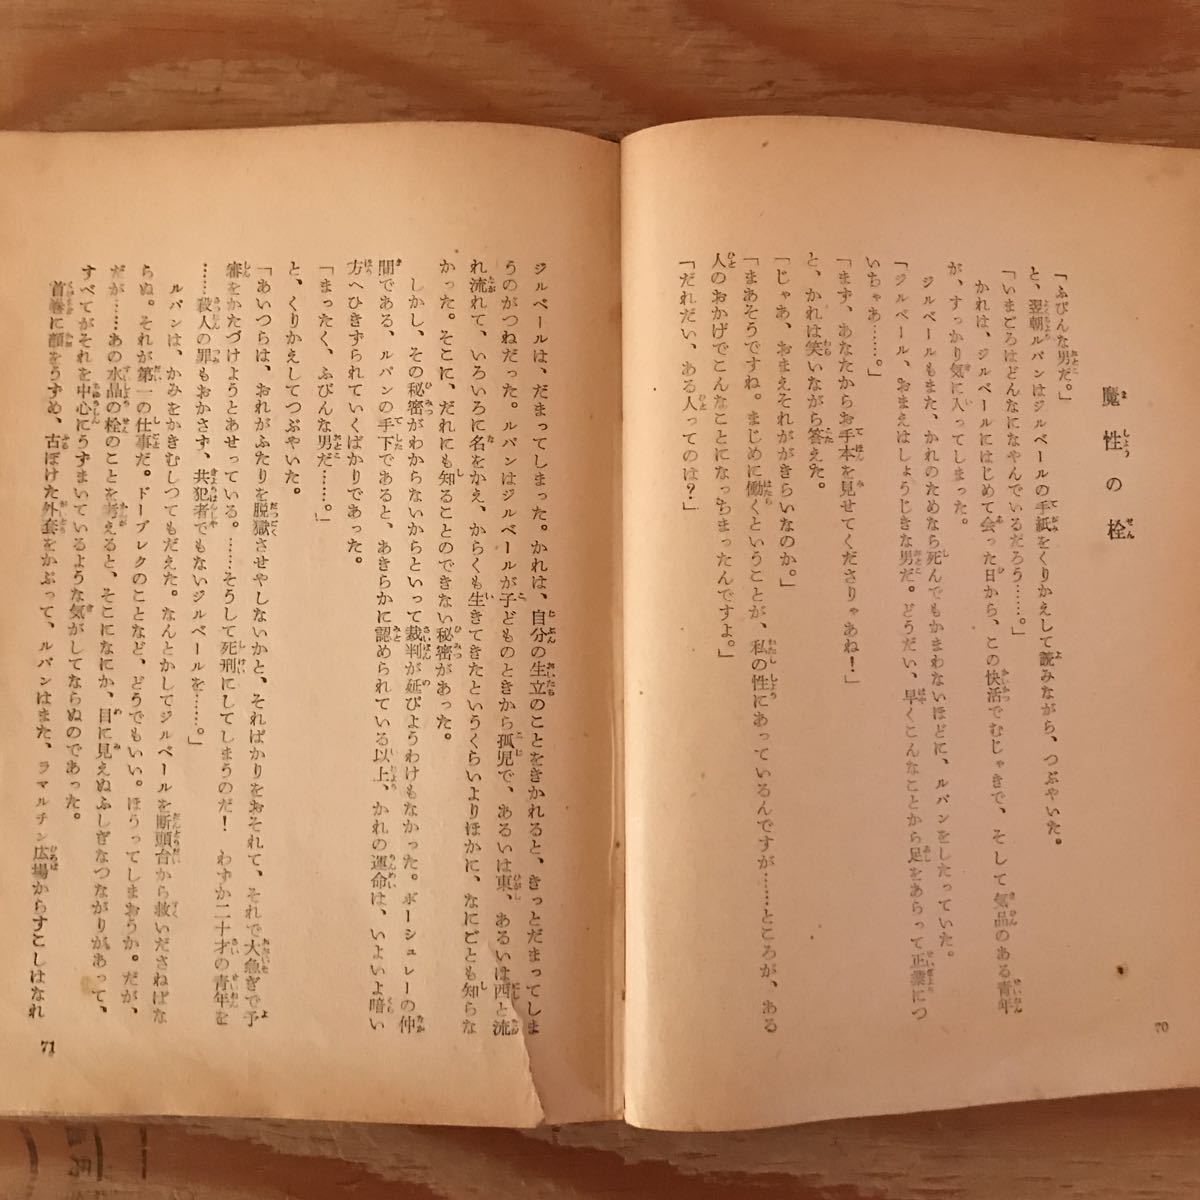 魔性の栓
「ふびんな男だ。」
と、翌朝ルパンはジルベールの手紙をくりかえして読みながら、つぶやいた。
「いまごろはどんなになやんでいるだろう……。」
かれは、ジルベールにはじめて会った日から、この快活でむじゃきで、そして気品のある青年
が、すっかり気に入ってしまった。
ジルベールもまた、かれのためなら死んでもかまわないほどに、ルパンをしたっていた。
「ジルベール、おまえはしょうじきな男だ。どうだい、早くこんなことから足をあらって正業につ
いちゃあ……。」
「まず、あなたからお手本を見せてくださりゃあね！」
と、かれは笑いながら答えた。
「じゃあ、おまえそれががきらいなのか。」
「まあそうですね。まじめに働くということが、私の性にあっているんですが……ところが、ある
人のおかげでこんなことになっちまったんですよ。」
「だれだい、ある人ってのは？」
70
ジルベールは、だまってしまった。かれは、自分の生立のことをきかれると、きっとだまってしま
うのがつねだった。ルパンはジルベールが子どものときから孤児で、あるいは東、あるいは西と流
れ流れて、いろいろに名をかえ、からくも生きてきたというくらいよりほかに、なにごとも知らな
かった。そこに、だれにも知ることのできない秘密があった。
しかし、その秘密がわからないからといって裁判が延びようわけもなかった。ボーシュレーの仲
間である、ルパンの手下であると、あきらかに認められている以上、かれの運命は、いよいよ暗い
方へひきずられていくばかりであった。
「まったく、ふびんな男だ……。」
と、くりかえしてつぶやいた。
「あいつらは、おれがふたりを脱獄させやしないかと、そればかりをおそれて、それで大急ぎで予
審をかたづけようとあせっている。……そうして死刑にしてしまうのだ！　わずか二十才の青年を
……殺人の罪もおかさず、共犯者でもないジルベールを……。」
ルパンは、かみをかきむしってもだえた。なんとかしてジルベールを断頭台から救いださねばな
らぬ。それが第一の仕事だ。ドーブレクのことなど、どうでもいい。ほうってしまおうか。だが、
だが……あの水晶の栓のことを考えると、そこになにか、目に見えぬふしぎなつながりがあって、
すべてがそれを中心にうずまいているような気がしてならぬのであった。
首巻に顔をうずめ、古ぼけた外套をかぶって、ルパンはまた、ラマルチン広場からすこしはなれ
71